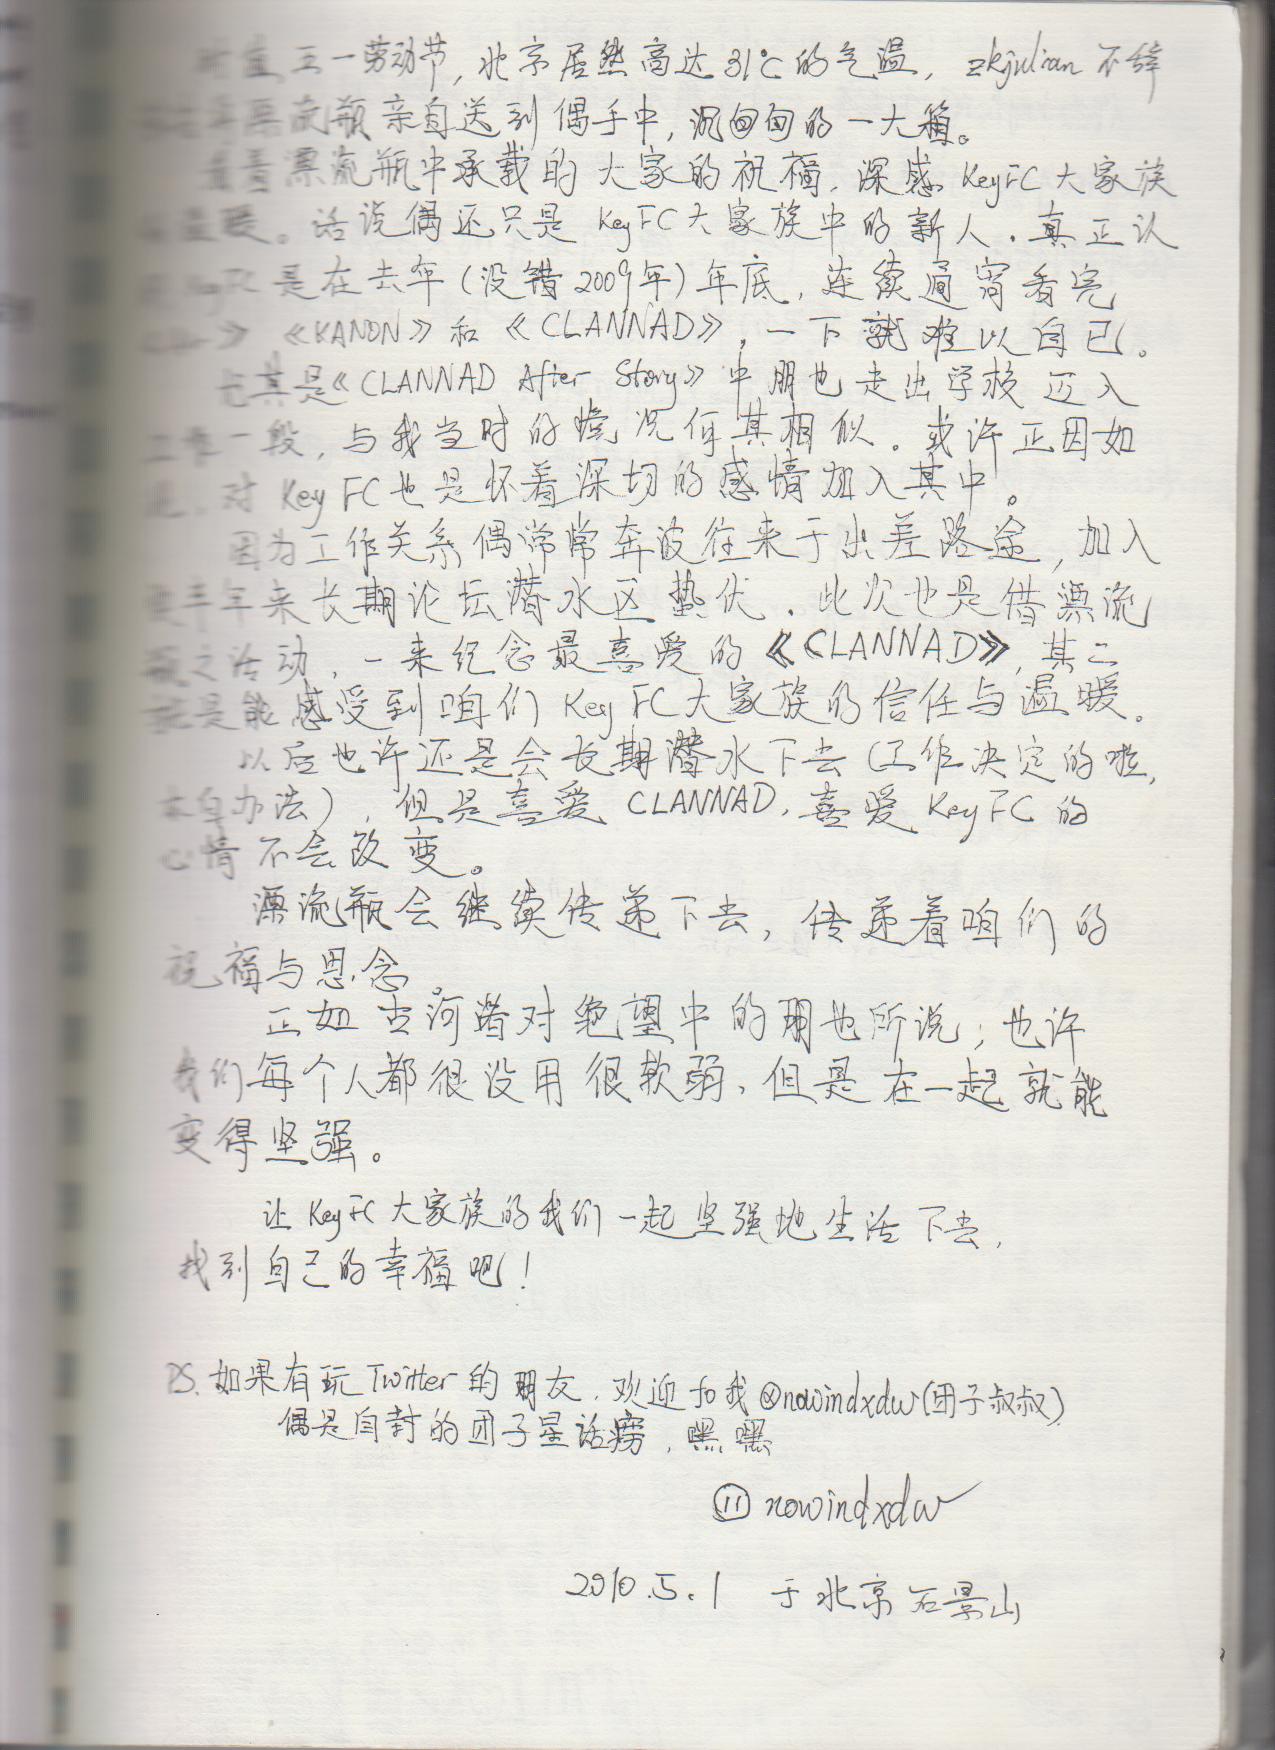 时值五一劳动节，北京居然高达31℃的气温，zkjulian不辞
漂流瓶亲自送到偶手中，沉甸甸的一大箱。
看着漂流瓶中承载的大家的祝福，深感KeyFC大家族
的温暖。话说偶还只是KeyFC大家族中的新人，真正认
识KeyFC是在去年(没错2009年)年底，连续通宵看完
》《KANON》和《CLANNAD》，一下就难以自已。
尤其是《CLANNAD After Story》中朋也走出学校迈入
工作一段，与我当时的境况何其相似。或许正因如
此，对KeyFC也是怀着深切的感情加入其中。
因为工作关系偶常常奔波往来于出差路途，加入
半年来长期论坛潜水区蛰伏，此次也是借漂流
瓶之活动，一来纪念最喜爱的《CLANNAD》，其二
就是能感受到咱们KeyFC大家族的信任与温暖。
以后也许还是会长期潜水下去(工作决定的啦，
木自办法)，但是喜爱CLANNAD，喜爱KeyFC的
心情不会改变。
漂流瓶会继续传递下去，传递着咱们的
祝福与思念。
正如古河渚对绝望中的朋也所说，也许
我们每个人都很没用很软弱，但是在一起就能
变得坚强。
让KeyFC大家族的我们一起坚强地生活下去，
找到自己的幸福吧！
PS.如果有玩Twitter的朋友，欢迎fo我@nowindxdw(团子叔叔)
偶是自封的团子星话痨，嘿嘿
nowindxdw
2010.5.1 于北京石景山